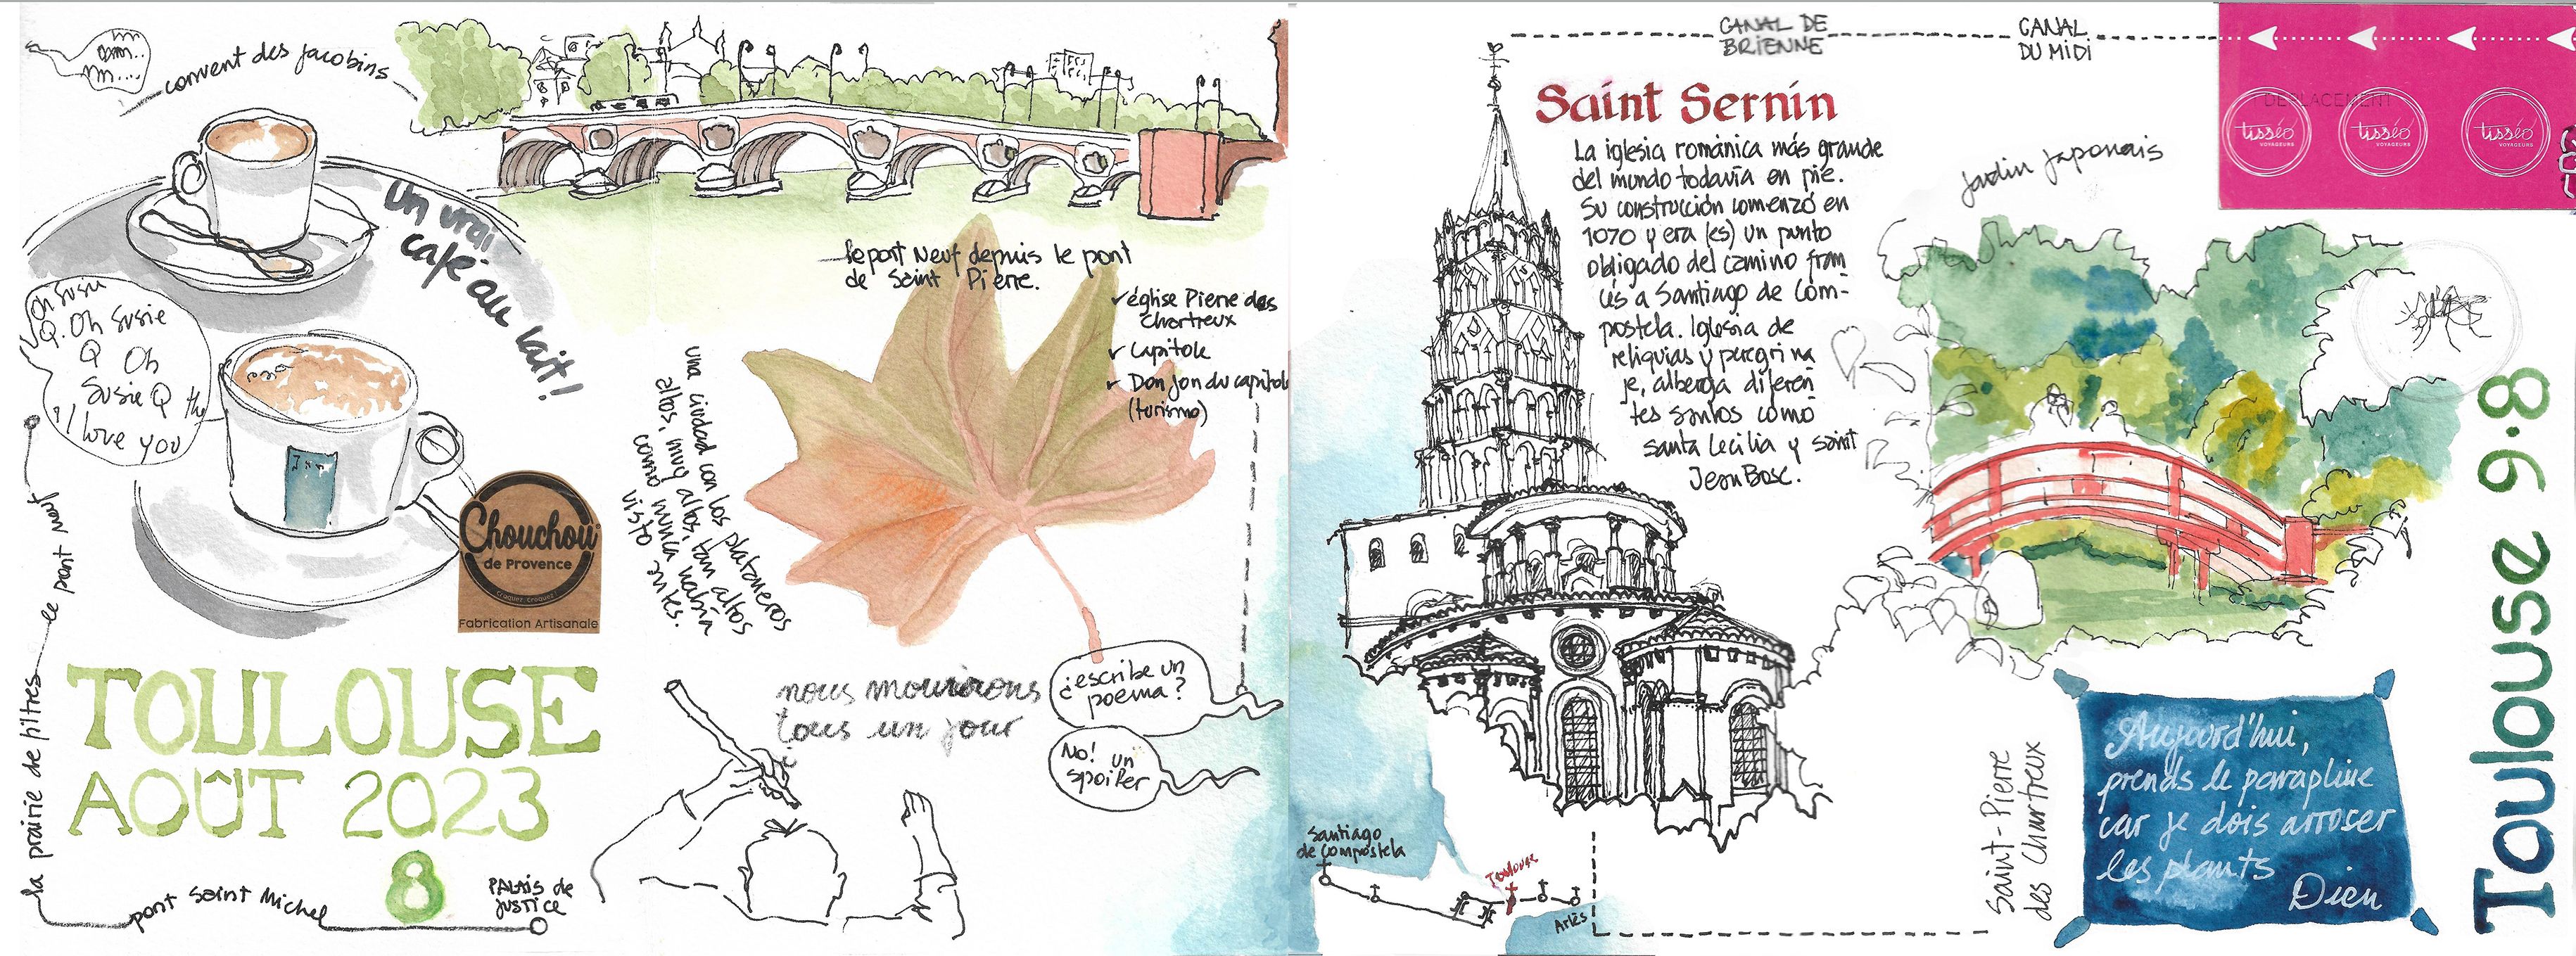 convent des jacobins
Un vrai
café au lait!
Oh Susie
Q. Oh Susie
Q Oh
Susie Q
I love you
Chouchou
de Provence
Craquez, Croquez!
Fabrication Artisanale
la prairie de filtres
le pont Neuf
TOULOUSE
AOÛT 2023
8
pont Saint Michel
PALAIS de
JUSTICE
le pont Neuf depuis le pont
de Saint Pierre.
✓ église Pierre des
Chartreux
✓ Capitole
✓ Donjon du capitole
(turismo)
una ciudad con los plataneros
altos, muy altos, tan altos
como nunca había
visto antes.
nous mourirons
tous un jour
¿escribe un
poema?
No! un
spoiler
CANAL DE
BRIENNE
CANAL
DU MIDI
Saint Sernin
La iglesia románica más grande
del mundo todavía en pie.
Su construcción comenzó en
1070 y era (es) un punto
obligado del camino fran
cés a Santiago de Com-
postela. Iglesia de
reliquias y peregrina
je, alberga diferen
tes santos como
santa Cecilia y saint
Jean Bosc.
Santiago
de Compostela
Toulouse
Arlés
1 DEPLACEMENT
tisséo
VOYAGEURS
tisséo
VOYAGEURS
tisséo
VOYAGEURS
Jardin Japonais
Saint-Pierre
des Chartreux
Aujourd'hui,
prends le parapluie
car je dois arroser
les plants
Dieu
Toulouse 9·8